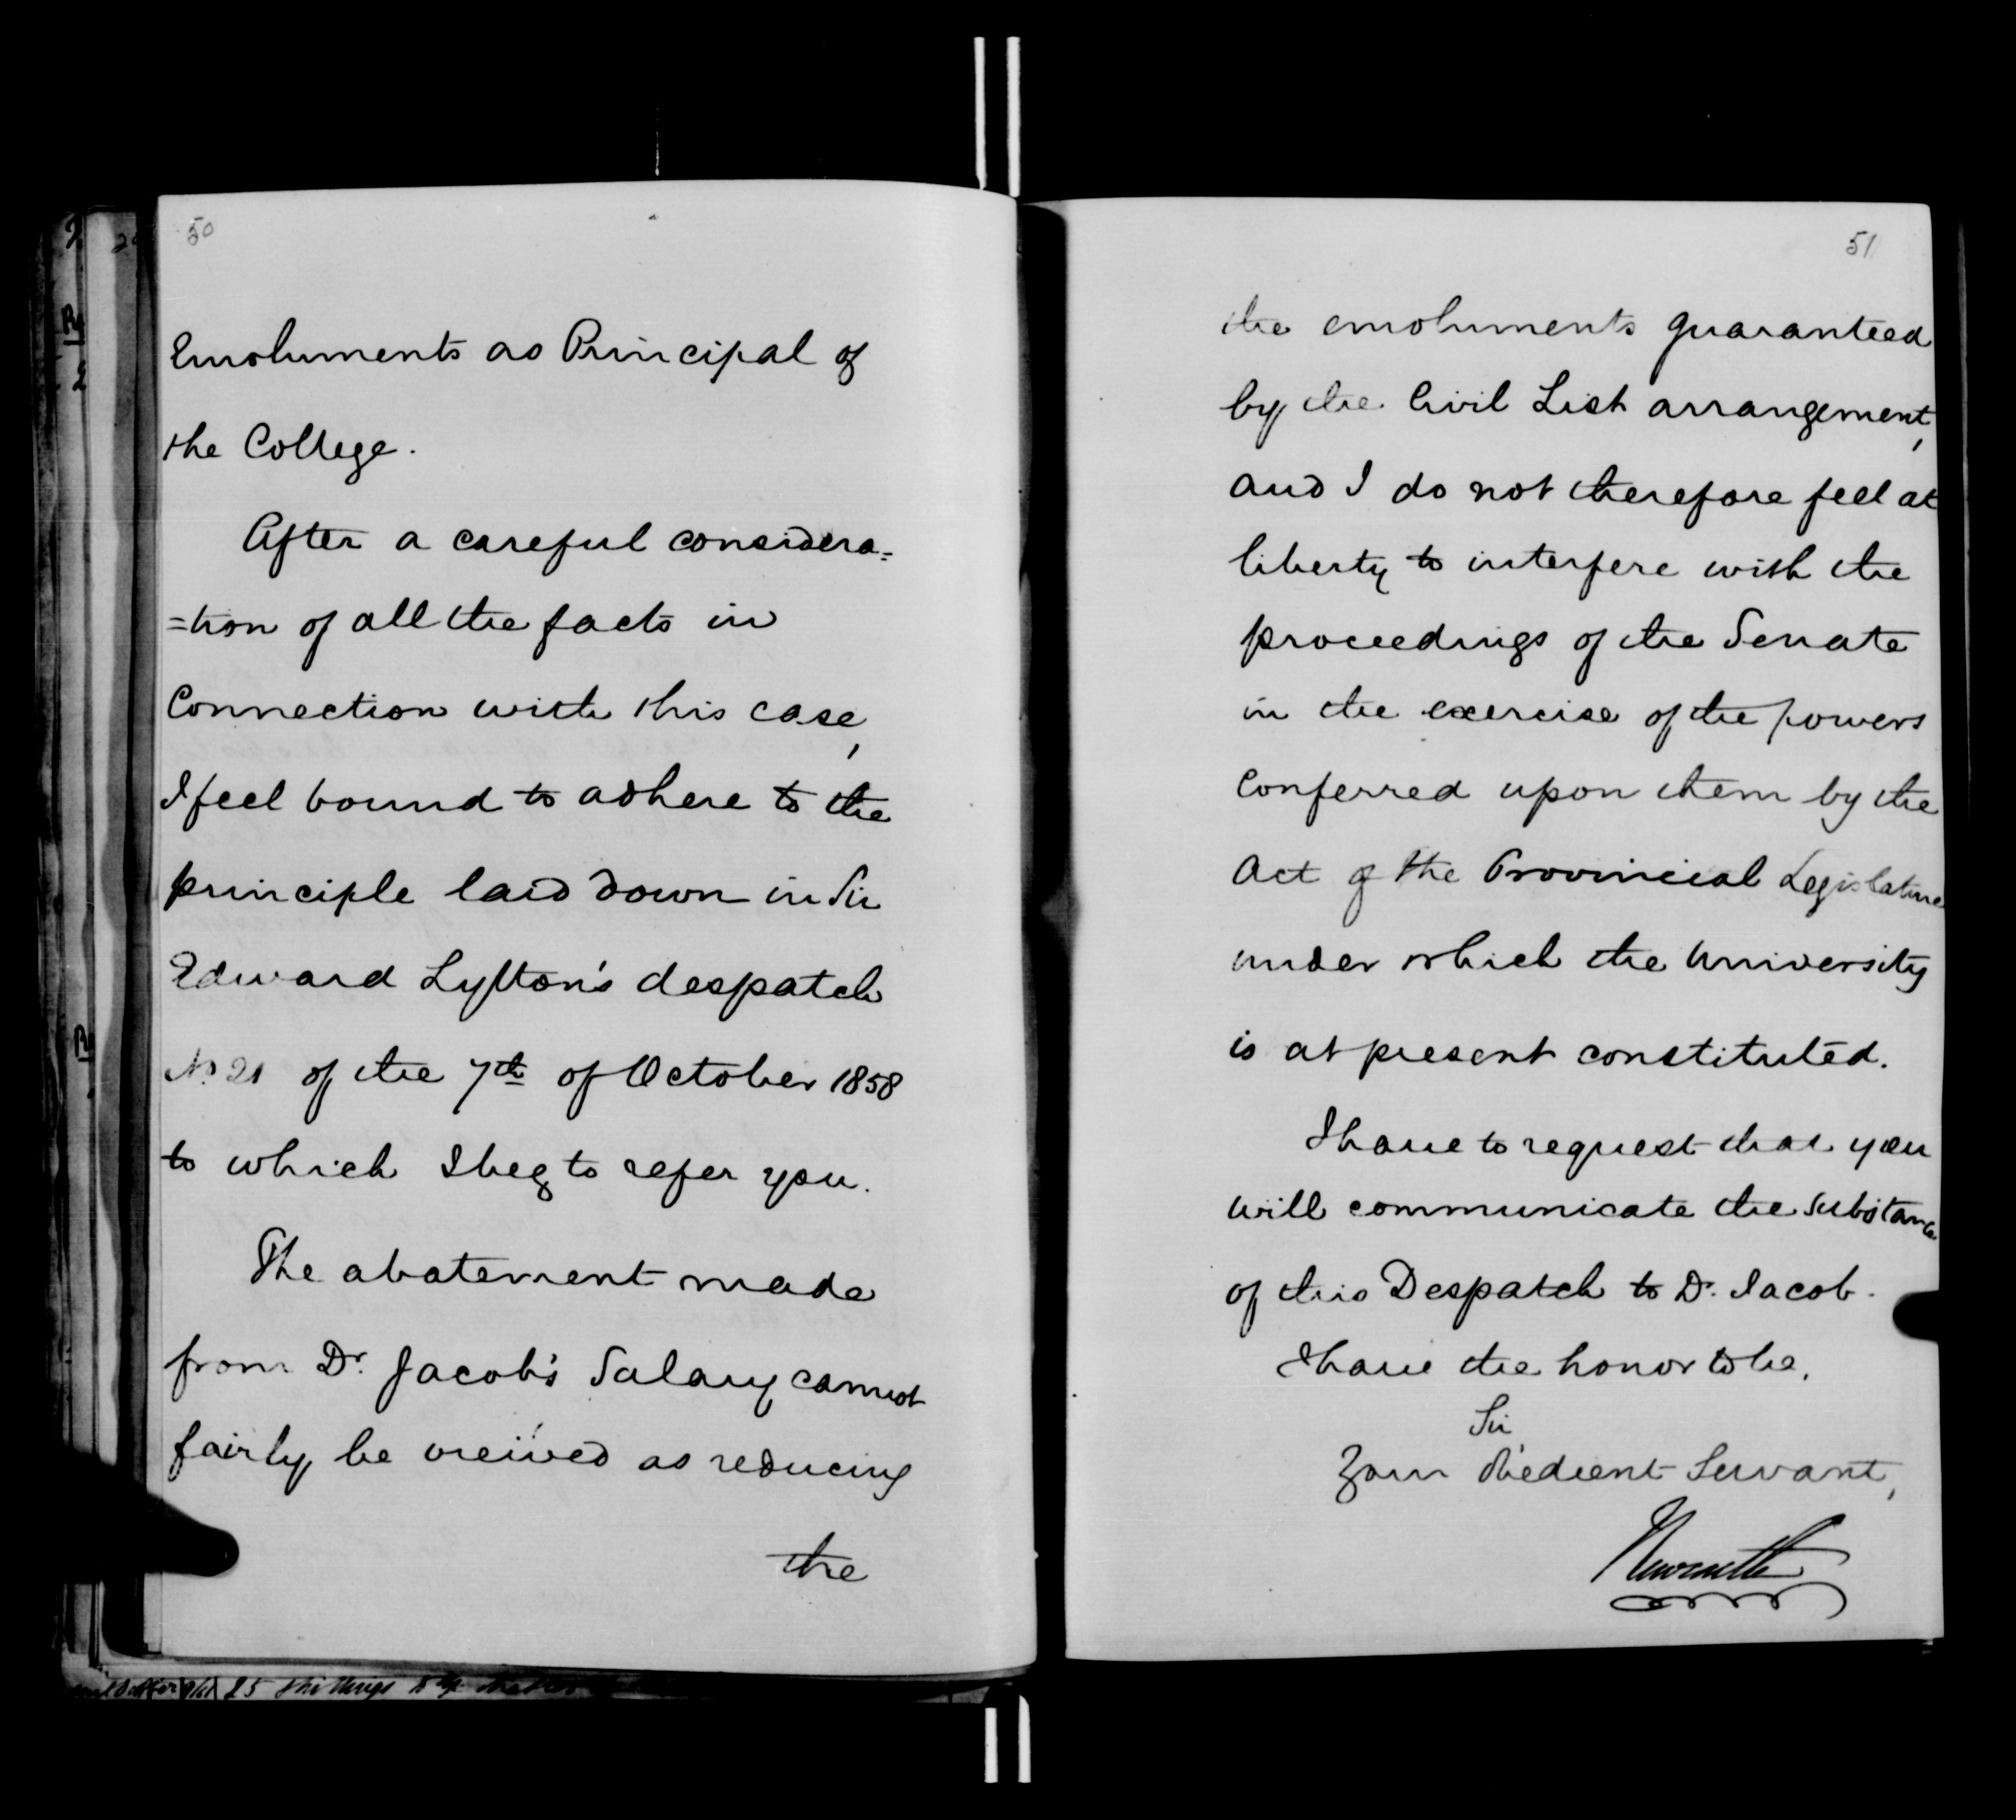 50
Emoluments as Principal of
the College.
After a careful considera=
=tion of all the facts in
Connection with this case,
I feel bound to adhere to the
principle laid down in Sir
Edward Lytton's despatch
No. 21 of the 7th of October 1858
to which I beg to refer you.
The abatement made
from Dr. Jacob's Salary cannot
fairly be vreiwed as reducing
the
51
the emoluments guaranteed
by the Civil List arrangement,
and I do not therefore feel at
liberty to interfere with the
proceedings of the Senate
in the exercise of the powers
Conferred upon them by the
Act of the Provincial Legislature
under which the University
is at present constituted.
I have to request that you
will communicate the substance
of this Despatch to Dr. Jacob.
I have the honor to be,
Sir
Your Obedient Servant,
Newcastle